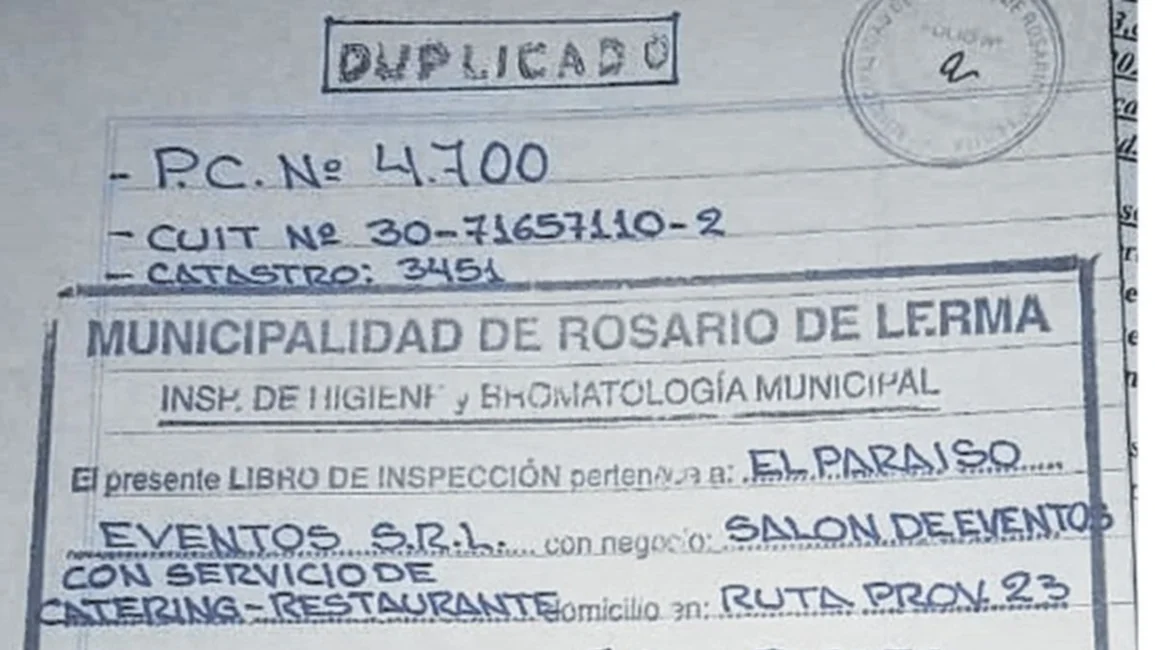 DUPLICADO
FOLIO Nº
2
- P.C. Nº 4.700
- CUIT Nº 30-71657110-2
- CATASTRO: 3451
MUNICIPALIDAD DE ROSARIO DE LERMA
INSP. DE HIGIENE y BROMATOLOGÍA MUNICIPAL
El presente LIBRO DE INSPECCIÓN pertenece a: EL PARAISO
EVENTOS S.R.L. con negocio: SALON DE EVENTOS
CON SERVICIO DE
CATERING-RESTAURANTE domicilio en: RUTA PROV. 23